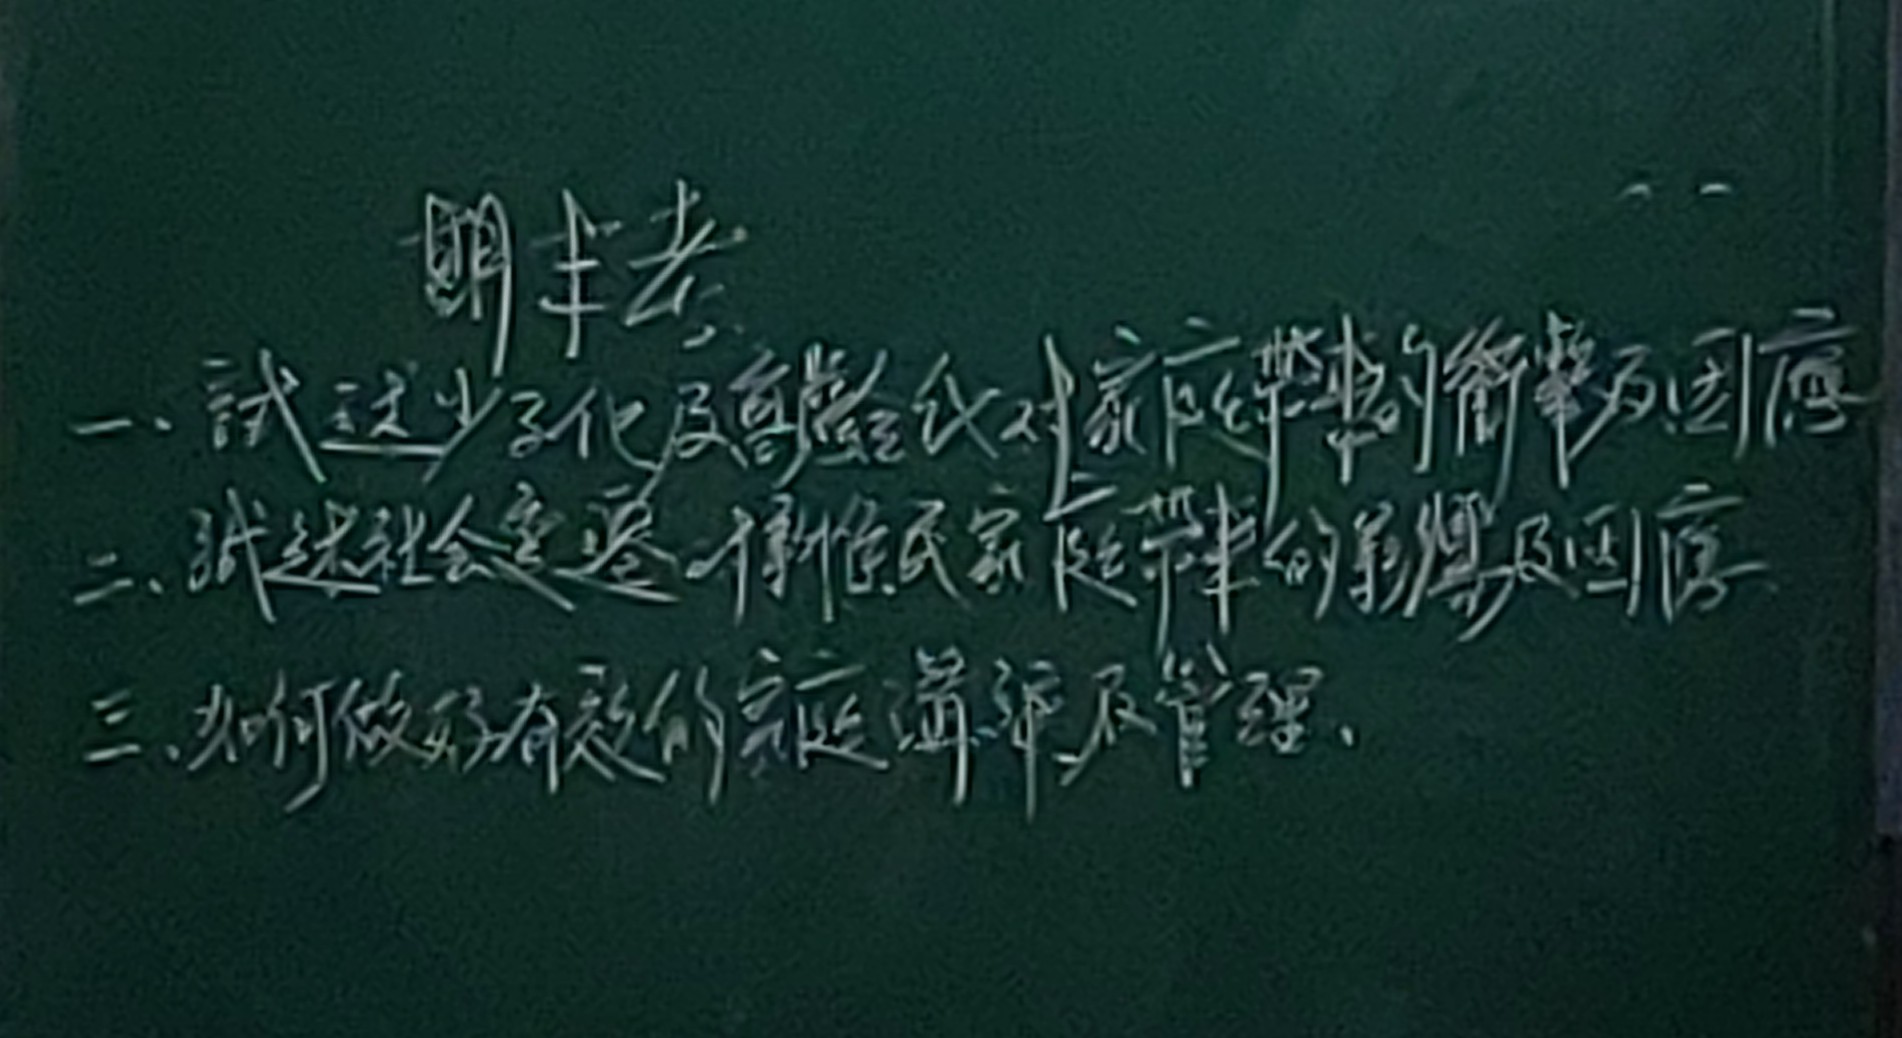 期末考
一、試述少子化及高齡化對家庭帶來的衝擊及因應
二、試述社會變遷 對新住民家庭帶來的影響及因應
三、如何做好有效的家庭溝通及管理、